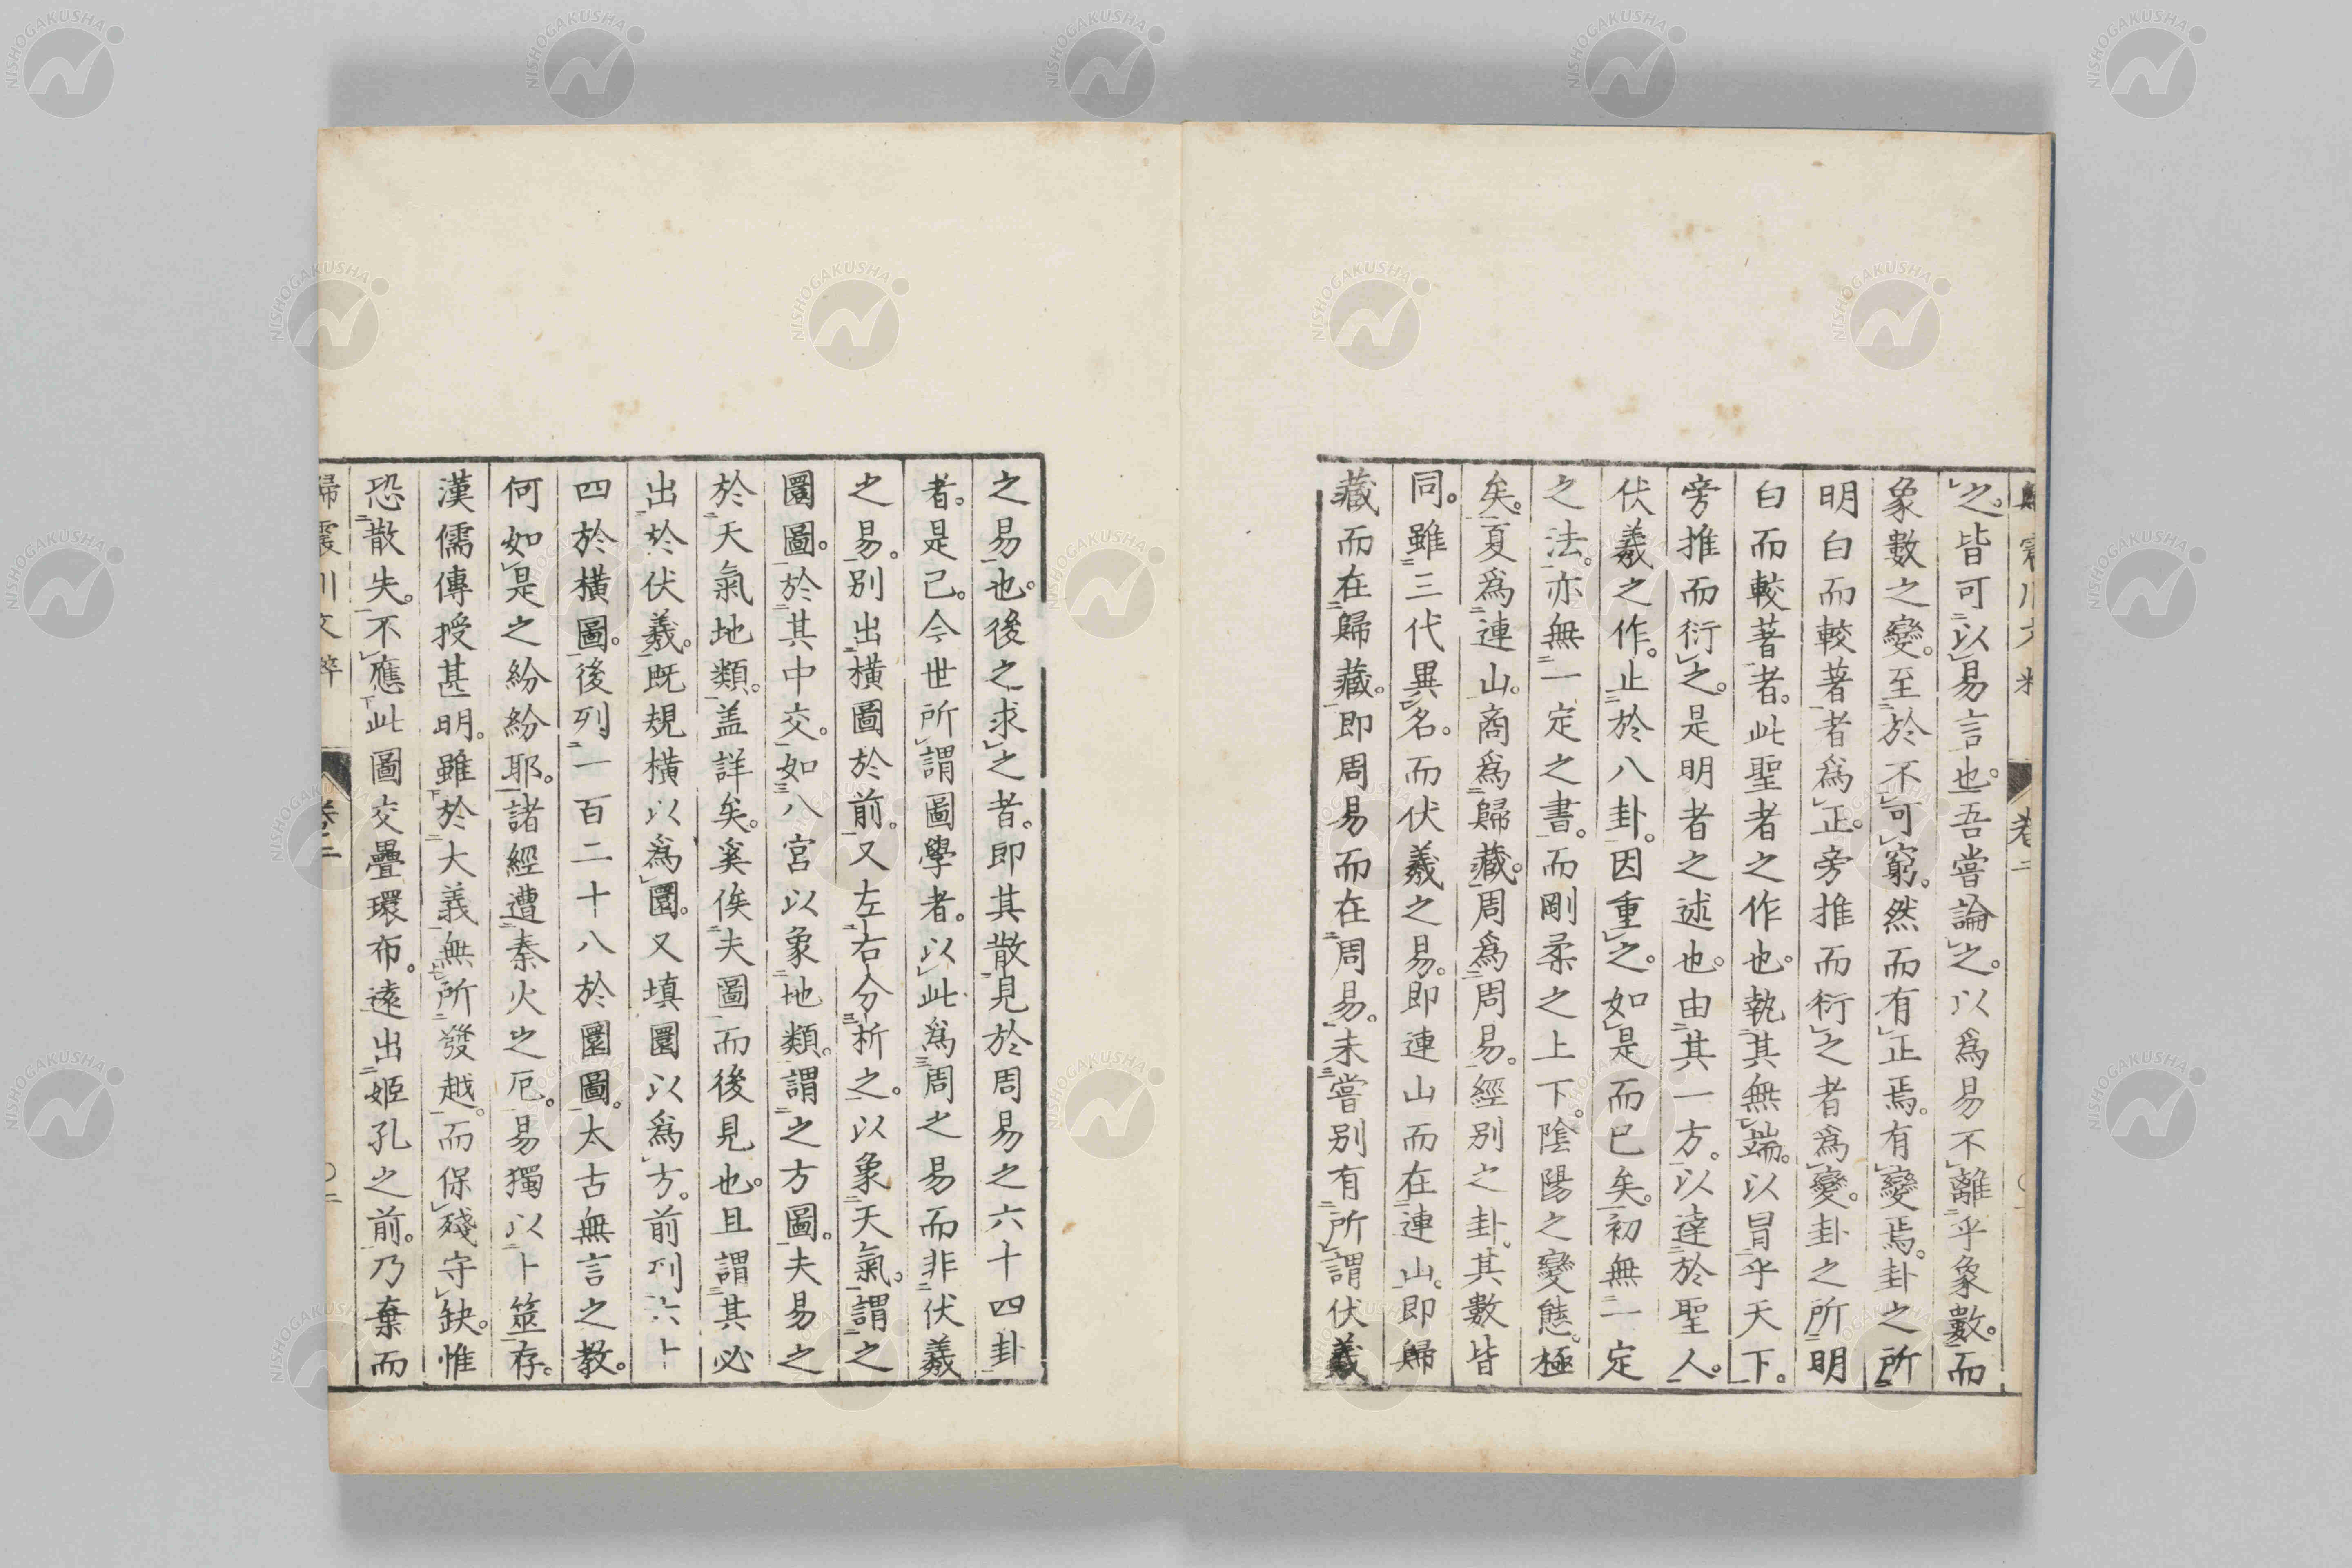 之。皆可以易言也。吾嘗論之。以爲易不離乎象數。而
象數之變。至於不可窮。然而有正焉。有變焉。卦之所
明白而較著者爲正。旁推而衍之者爲變。卦之所明
白而較著者。此聖者之作也。執其無端。以冒乎天下。
旁推而衍之。是明者之述也。由其一方。以達於聖人。
伏羲之作。止於八卦。因重之。如是而已矣。初無一定
之法。亦無一定之書。而剛柔之上下。陰陽之變態。極
矣。夏爲連山。商爲歸藏。周爲周易。經別之卦。其數皆
同。雖三代異名。而伏羲之易。即連山而在連山。即歸
藏而在歸藏。即周易而在周易。未嘗別有所謂伏羲
之易也。後之求之者。即其散見於周易之六十四卦
者。是已。今世所謂圖學者。以此爲周之易而非伏羲
之易。別出橫圖於前。又左右分析之。以象天氣。謂之
圜圖。於其中交。如八宮以象地類。謂之方圖。夫易之
於天氣地類。盖詳矣。奚俟夫圖而後見也。且謂其必
出於伏羲。既規橫以爲圜。又填圜以爲方。前列六十
四於橫圖。後列一百二十八於圜圖。太古無言之教。
何如是之紛紛耶。諸經遭秦火之厄。易獨以卜筮存。
漢儒傳授甚明。雖於大義無所發越。而保殘守缺。惟
恐散失。不應此圖交疊環布。遠出姬孔之前。乃棄而
歸震川文粹 卷二